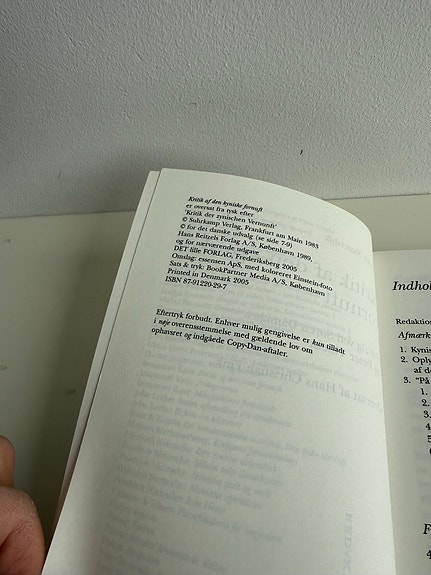 Kritik af den kyniske fornuft
er oversat fra tysk efter
"Kritik der zynischen Vernunft"
© Suhrkamp Verlag, Frankfurt am Main 1983
© for det danske udvalg (se side 7-9)
Hans Reitzels Forlag A/S, København 1989,
og for nærværende udgave
DET lille FORLAG, Frederiksberg 2005
Omslag: essensen ApS, med koloreret Einstein-foto
Sats & tryk: BookPartner Media A/S, København
Printed in Denmark 2005
ISBN 87-91220-29-7
Eftertryk forbudt. Enhver mulig gengivelse er kun tilladt
i nøje overensstemmelse med gældende lov om
ophavsret og indgåede Copy-Dan-aftaler.
Indhol
Redaktion
Afmærk
1. Kynis
2. Oply
af de
3. "På
1.
2.
3.
4
5
F
4